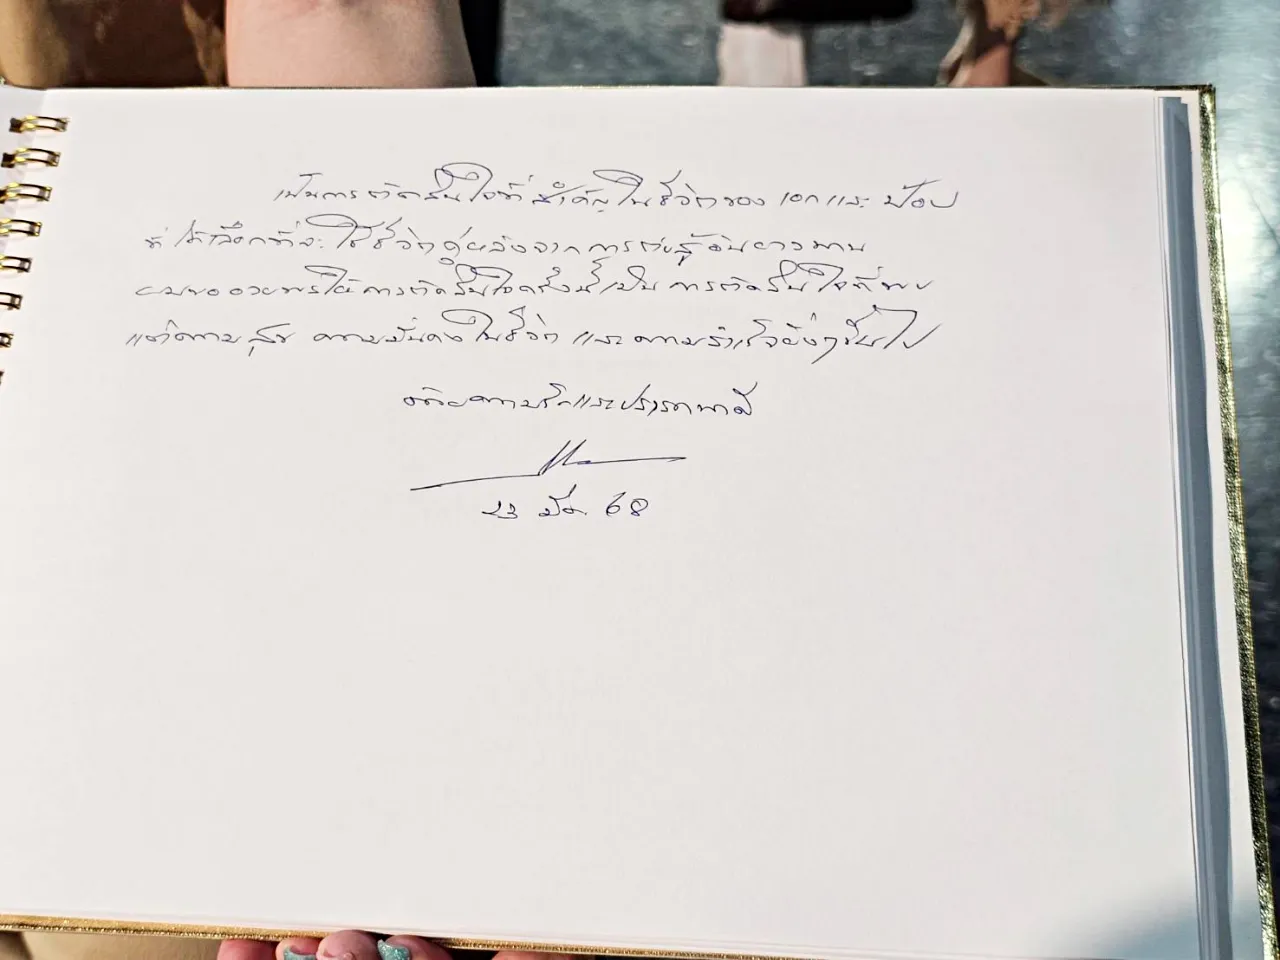 เป็นการตัดสินใจที่สำคัญในชีวิตของ เอก และ ป๊อป
ที่ได้เลือกที่จะใช้ชีวิตคู่หลังจากการต่อสู้อันยาวนาน
ผมขออวยพรให้การตัดสินใจครั้งนี้ เป็นการตัดสินใจที่พบ
แต่ความสุข ความมั่นคงในชีวิต และความสำเร็จยิ่งๆขึ้นไป
ด้วยความรักและปรารถนาดี
23 มค. 68